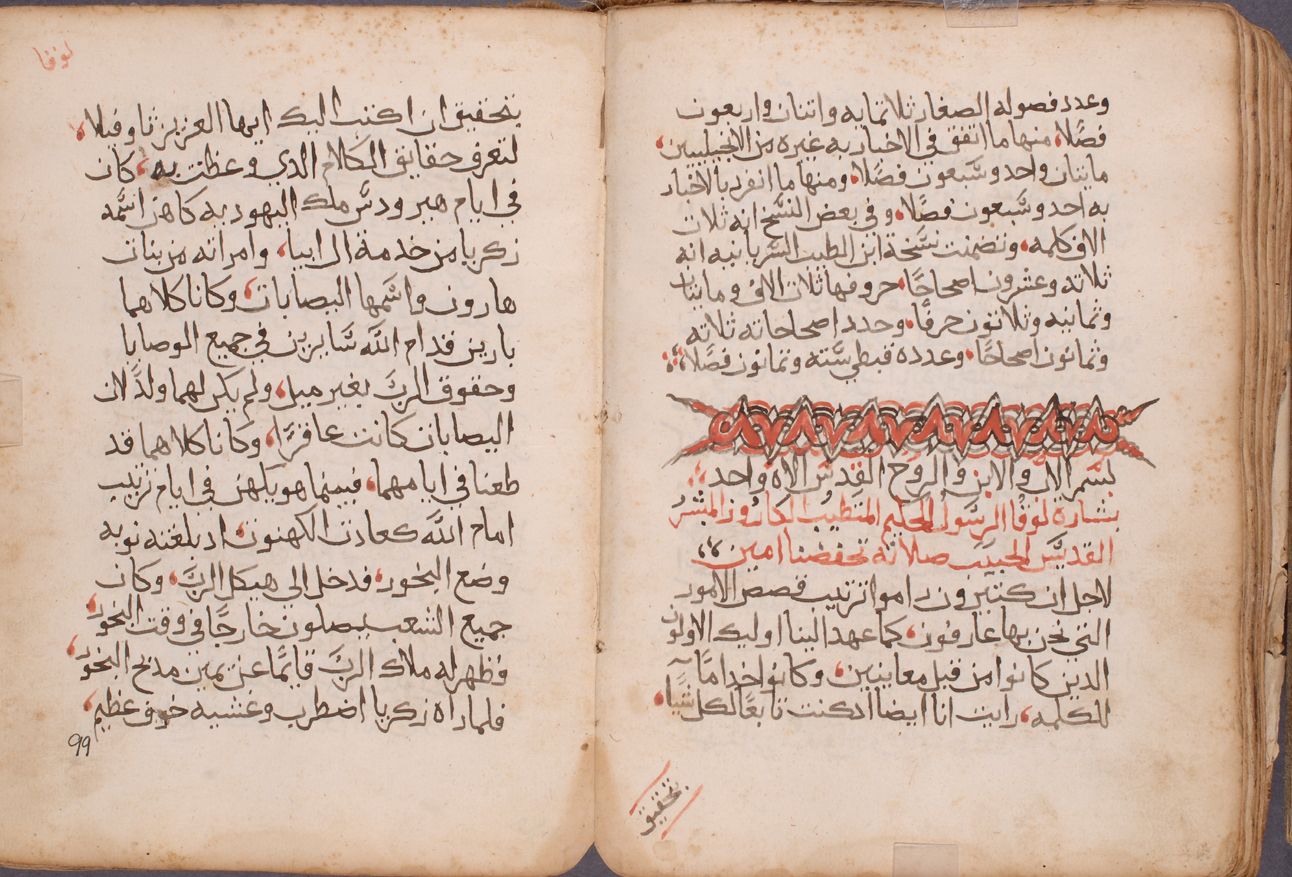 وعدد فصوله الصغار ثلاتمايه واتنان واربعون
فصلا، منها ما اتفق في الاخبار به غيره من الانجيليين،
مايتان واحد وسبعون فصلا، ومنها ما انفرد بالاخبار
به احد وسبعون فصلا، وفي بعض النسخ انه ثلات
الاف كلمه، وتضمنت نسخة ابن الطيب السريانيه انه
ثلاثه وعشرون اصحاحا، حروفها ثلات الاف ومايتان
وثمانيه وثلاثون حرفا، وحدد اصحاحاته ثلاثه
وثمانون اصحاحا، وعدده قبطي سته وثمانون فصلا،
بسم الاب والابن والروح القدس الاه واحد
بشارة لوقا الرسول الحكيم المتطيب الكاروز المبشر
القديس الحبيب صلاته تحفضنا امين
لاجل ان كتيرون راموا ترتيب قصص الامور
التي نحن بها عارفون، كما عهد الينا اوليك الاولون
الدين كانوا من قبل معاينين، وكانوا خداما
للكلمه، رايت انا ايضا اد كنت تابعا لكل شيا،
بتحقيق
لوقا
بتحقيق ان اكتب اليك ايها العزيز تاوفيلا،
لتعرف حقايق الكلام الدي وعظت به، كان
في ايام هيرودس ملك اليهوديه كاهن اسمه
زكريا من خدمة ال ابيا، وامراته من بنات
هارون واسمها اليصابات، وكانا كلاهما
بارين قدام الله سايرين في جميع الوصايا
وحقوق الرب بغير ميل، ولم يكن لهما ولدا لان
اليصابات كانت عاقرا، وكانا كلاهما قد
طعنا في ايامهما، فبينما هو يكهن في ايام ترتيب
امام الله كعادت الكهنوت، اد بلغته نوبه
وضع البخور، فدخل الى هيكل الرب، وكان
جميع الشعب يصلون خارجا في وقت البخور،
فظهر له ملاك الرب قايما عن يمين مدبح البخور،
فلما راه زكريا اضطرب وغشيه خوف عظيم،
99